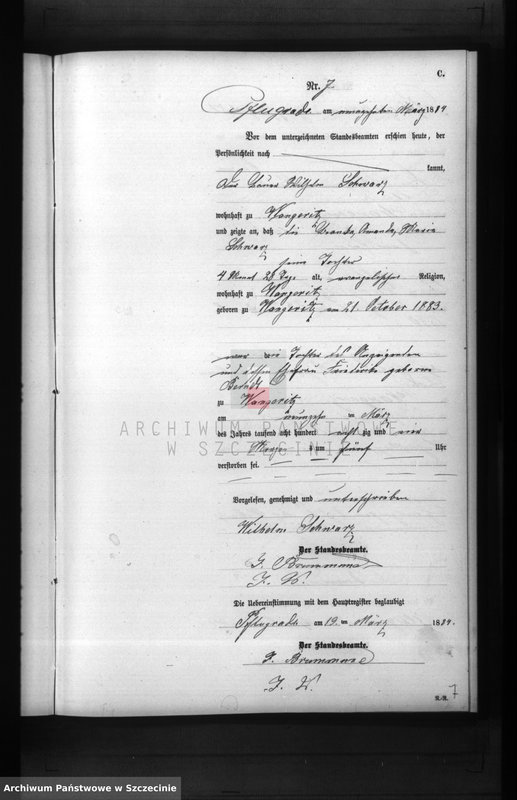 C.
Nr. 7
Pflugrade am neunzehnten März 1884
Vor dem unterzeichneten Standesbeamten erschien heute, der
Persönlichkeit nach
kannt,
Der Bauer Wilhelm Schwarz
wohnhaft zu Wangeritz
und zeigte an, daß die Amanda, Maria
Schwarz
seine Tochter
4 Monat 28 Tage alt, evangelischer Religion,
wohnhaft zu Wangeritz
geboren zu Wangeritz am 21. October 1883.
war die Tochter des Anzeigenden
und dessen Ehefrau Friederike geborne
Berndt
zu Wangeritz
am neunzehn ten März
des Jahres tausend acht hundert acht zig und vier
Morgens um fünf Uhr
verstorben sei.
Vorgelesen, genehmigt und unterschrieben
Wilhelm Schwarz
Der Standesbeamte.
J. V.
Die Uebereinstimmung mit dem Hauptregister beglaubigt
Pflugrade am 19. ten März 1884.
Der Standesbeamte.
J. V.
7
ARCHIWUM PAŃSTWOWE
W SZCZECINIE
Archiwum Państwowe w Szczecinie